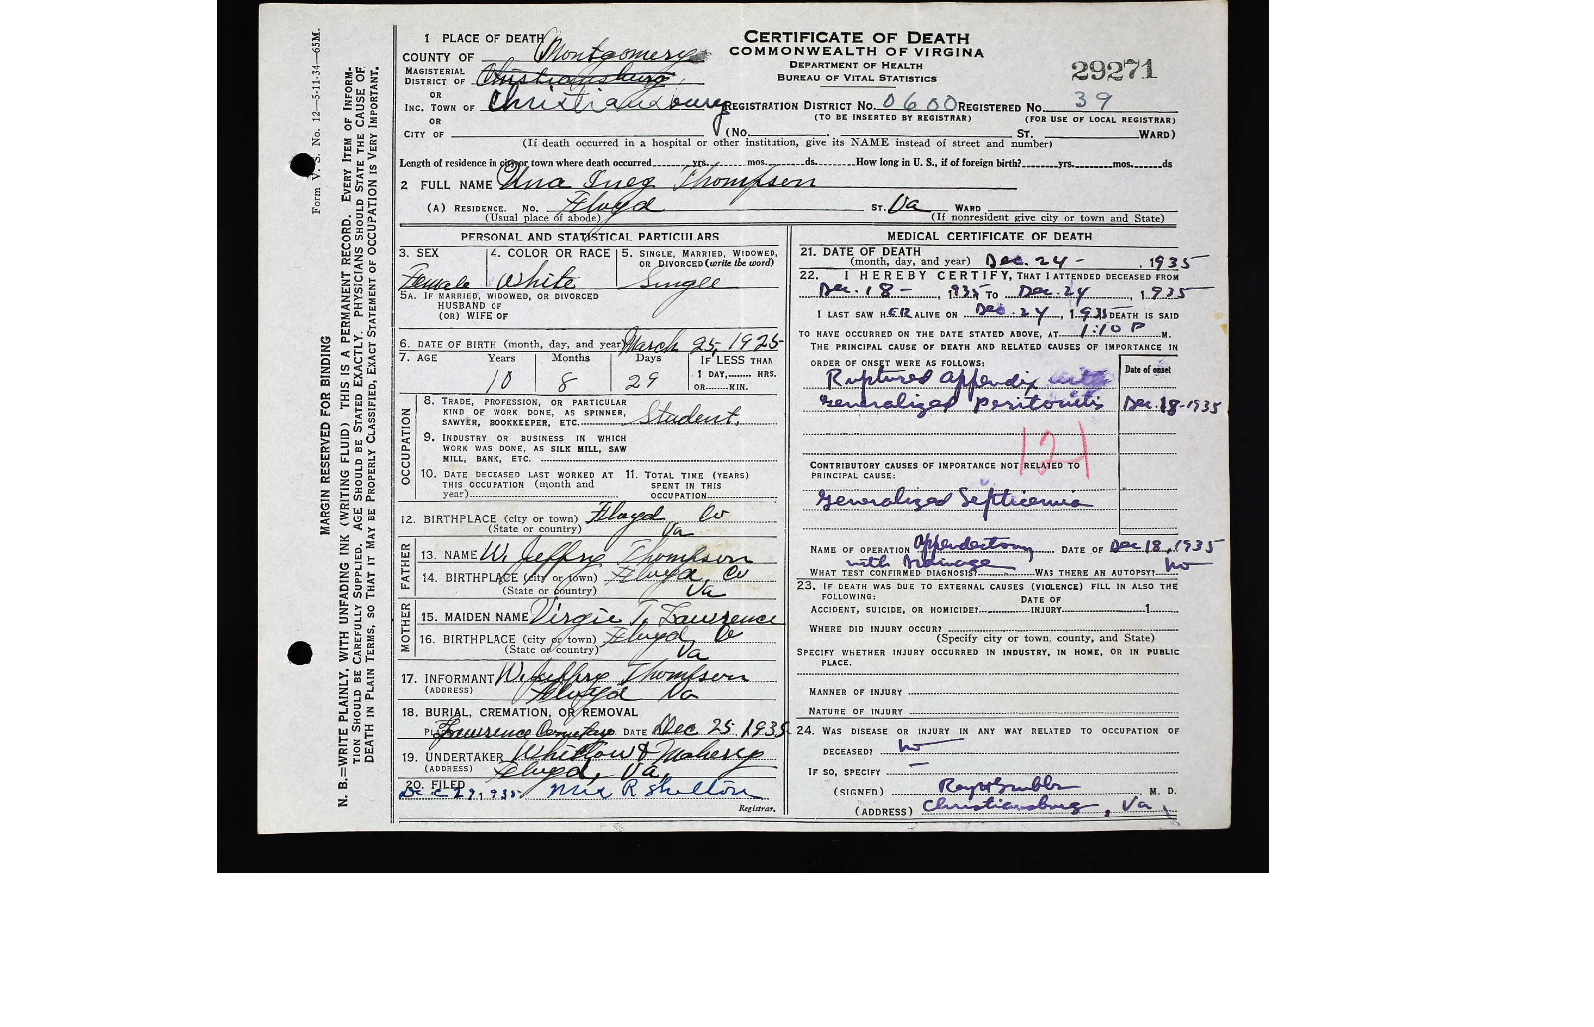 Form V. S. No. 12—5-11-34—65M.
MARGIN RESERVED FOR BINDING
N. B.=WRITE PLAINLY, WITH UNFADING INK (WRITING FLUID) THIS IS A PERMANENT RECORD. EVERY ITEM OF INFORM-
TION SHOULD BE CAREFULLY SUPPLIED. AGE SHOULD BE STATED EXACTLY. PHYSICIANS SHOULD STATE THE CAUSE OF
DEATH IN PLAIN TERMS, SO THAT IT MAY BE PROPERLY CLASSIFIED, EXACT STATEMENT OF OCCUPATION IS VERY IMPORTANT.
CERTIFICATE OF DEATH
COMMONWEALTH OF VIRGINIA
DEPARTMENT OF HEALTH
BUREAU OF VITAL STATISTICS
29271
1 PLACE OF DEATH
COUNTY OF Montgomery
MAGISTERIAL DISTRICT OF Christiansburg
OR
INC. TOWN OF Christiansburg REGISTRATION DISTRICT NO. 0600 REGISTERED NO. 39
(TO BE INSERTED BY REGISTRAR) (FOR USE OF LOCAL REGISTRAR)
OR
CITY OF (NO. ST. WARD)
(If death occurred in a hospital or other institution, give its NAME instead of street and number)
Length of residence in city or town where death occurred yrs. mos. ds. How long in U. S., if of foreign birth? yrs. mos. ds
2 FULL NAME Una Inez Thompson
(A) RESIDENCE. NO. Floyd ST. Va WARD
(Usual place of abode) (If nonresident give city or town and State)
PERSONAL AND STATISTICAL PARTICULARS
3. SEX 4. COLOR OR RACE 5. SINGLE, MARRIED, WIDOWED, OR DIVORCED (write the word)
Female White Single
5A. IF MARRIED, WIDOWED, OR DIVORCED
HUSBAND OF
(OR) WIFE OF
6. DATE OF BIRTH (month, day, and year) March 25, 1925
7. AGE Years Months Days IF LESS THAN
10 8 29 1 DAY, HRS.
OR MIN.
OCCUPATION
8. TRADE, PROFESSION, OR PARTICULAR
KIND OF WORK DONE, AS SPINNER,
SAWYER, BOOKKEEPER, ETC. Student.
9. INDUSTRY OR BUSINESS IN WHICH
WORK WAS DONE, AS SILK MILL, SAW
MILL, BANK, ETC.
10. DATE DECEASED LAST WORKED AT THIS OCCUPATION (month and year) 11. TOTAL TIME (YEARS) SPENT IN THIS OCCUPATION
12. BIRTHPLACE (city or town) Floyd Co
(State or country) Va
FATHER
13. NAME W. Jeffre Thompson
14. BIRTHPLACE (city or town) Floyd Co
(State or country) Va
MOTHER
15. MAIDEN NAME Virgie T. Lawrence
16. BIRTHPLACE (city or town) Floyd Co
(State or country) Va
17. INFORMANT W. Jeffre Thompson
(ADDRESS) Floyd Va
18. BURIAL, CREMATION, OR REMOVAL
PLACE Lawrence Cemetery DATE Dec 25, 1935
19. UNDERTAKER Whitlow &
(ADDRESS) Floyd, Va.
20. FILED
Dec 27, 1935 R Shelton
Registrar.
MEDICAL CERTIFICATE OF DEATH
21. DATE OF DEATH
(month, day, and year) Dec. 24 - , 1935
22. I HEREBY CERTIFY, THAT I ATTENDED DECEASED FROM
Dec. 18 - , 1935 TO Dec. 24 , 1935
I LAST SAW HER ALIVE ON Dec. 24, 1935 DEATH IS SAID
TO HAVE OCCURRED ON THE DATE STATED ABOVE, AT 1:10 P M.
THE PRINCIPAL CAUSE OF DEATH AND RELATED CAUSES OF IMPORTANCE IN
ORDER OF ONSET WERE AS FOLLOWS: Date of onset
Ruptured appendix with
generalized peritonitis Dec. 18-1935
124
CONTRIBUTORY CAUSES OF IMPORTANCE NOT RELATED TO
PRINCIPAL CAUSE:
Generalized Septicemia
NAME OF OPERATION Appendectomy DATE OF Dec 18, 1935
with Drainage
WHAT TEST CONFIRMED DIAGNOSIS? WAS THERE AN AUTOPSY? No
23. IF DEATH WAS DUE TO EXTERNAL CAUSES (VIOLENCE) FILL IN ALSO THE
FOLLOWING: DATE OF
ACCIDENT, SUICIDE, OR HOMICIDE? INJURY 1
WHERE DID INJURY OCCUR?
(Specify city or town, county, and State)
SPECIFY WHETHER INJURY OCCURRED IN INDUSTRY, IN HOME, OR IN PUBLIC
PLACE.
MANNER OF INJURY
NATURE OF INJURY
24. WAS DISEASE OR INJURY IN ANY WAY RELATED TO OCCUPATION OF
DECEASED? No
IF SO, SPECIFY
(SIGNED) M. D.
(ADDRESS) Christiansburg, Va.